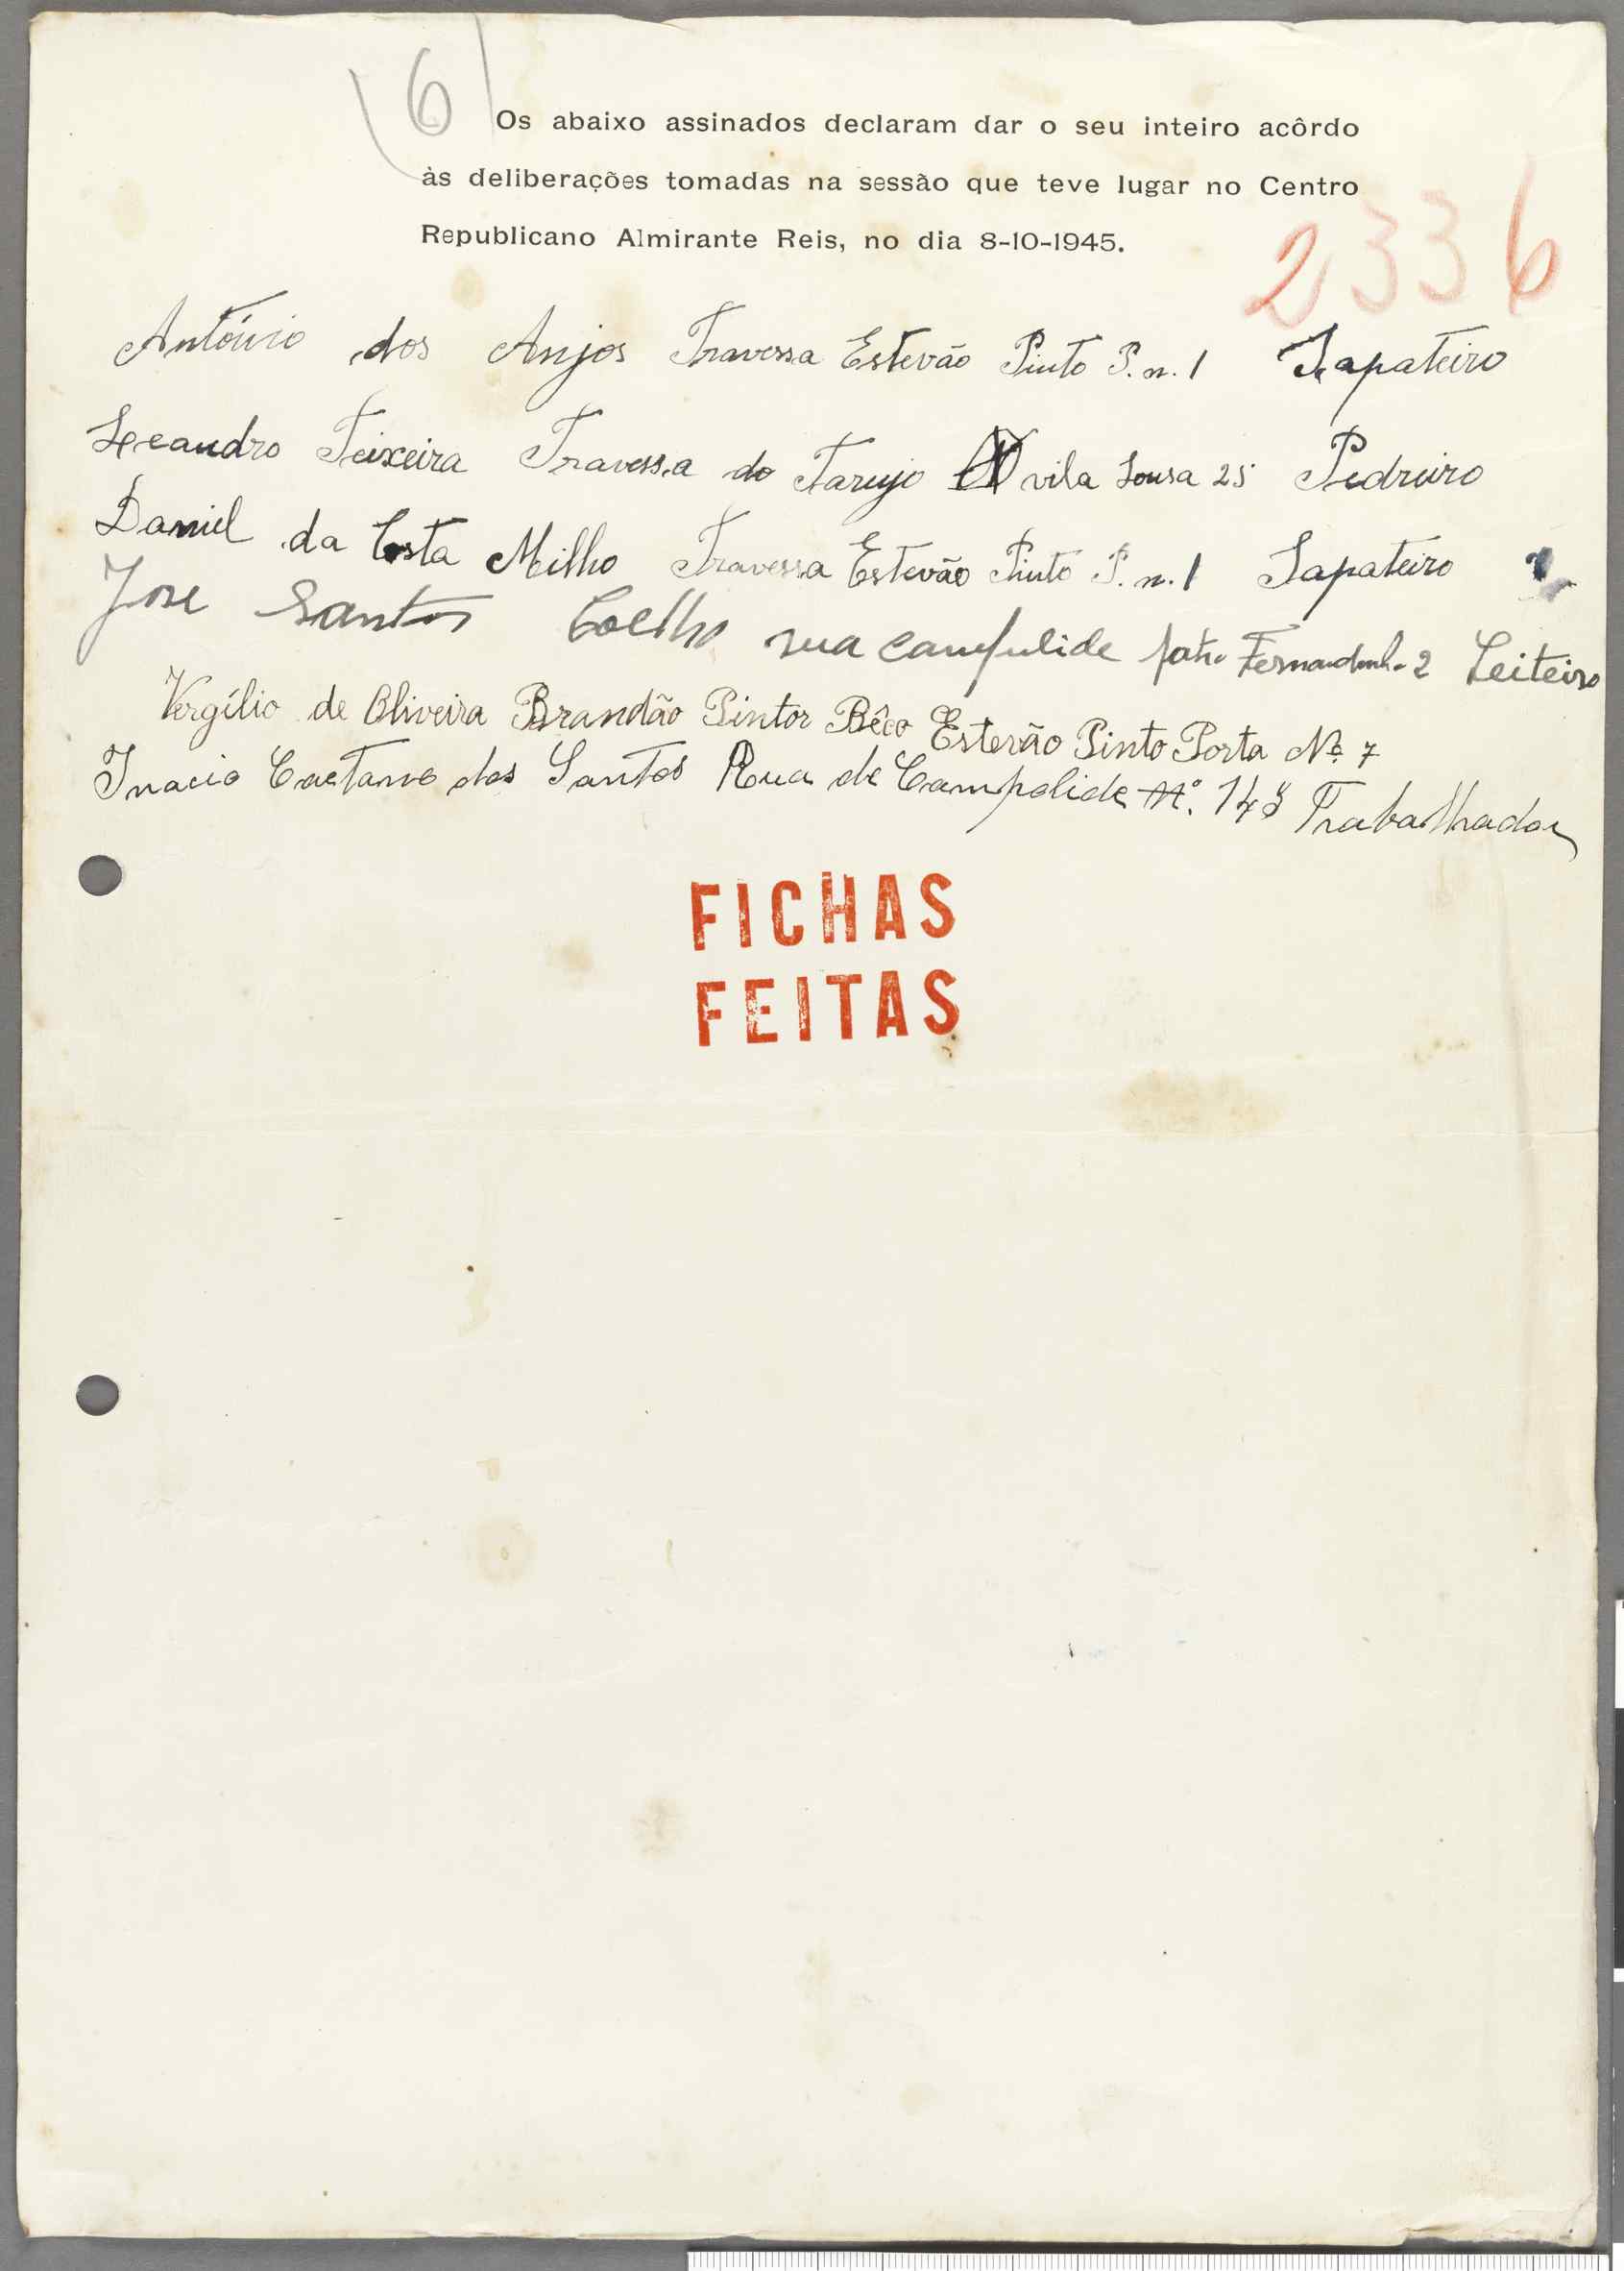 6
Os abaixo assinados declaram dar o seu inteiro acôrdo
às deliberações tomadas na sessão que teve lugar no Centro
Republicano Almirante Reis, no dia 8-10-1945.
2336
António dos Anjos Travessa Estevão Pinto P. n. 1 Sapateiro
Leandro Teixeira Travessa do Tarujo vila Sousa 25 Pedreiro
Daniel da Costa Milho Travessa Estevão Pinto P. n. 1 Sapateiro
Jose Santos Coelho rua campulide Leiteiro
Vergílio de Oliveira Brandão Pintor Bêco Estevão Pinto Porta Nº 7
Inacio Caetano dos Santos Rua de Campolide Nº. 143 Trabalhador
FICHAS
FEITAS